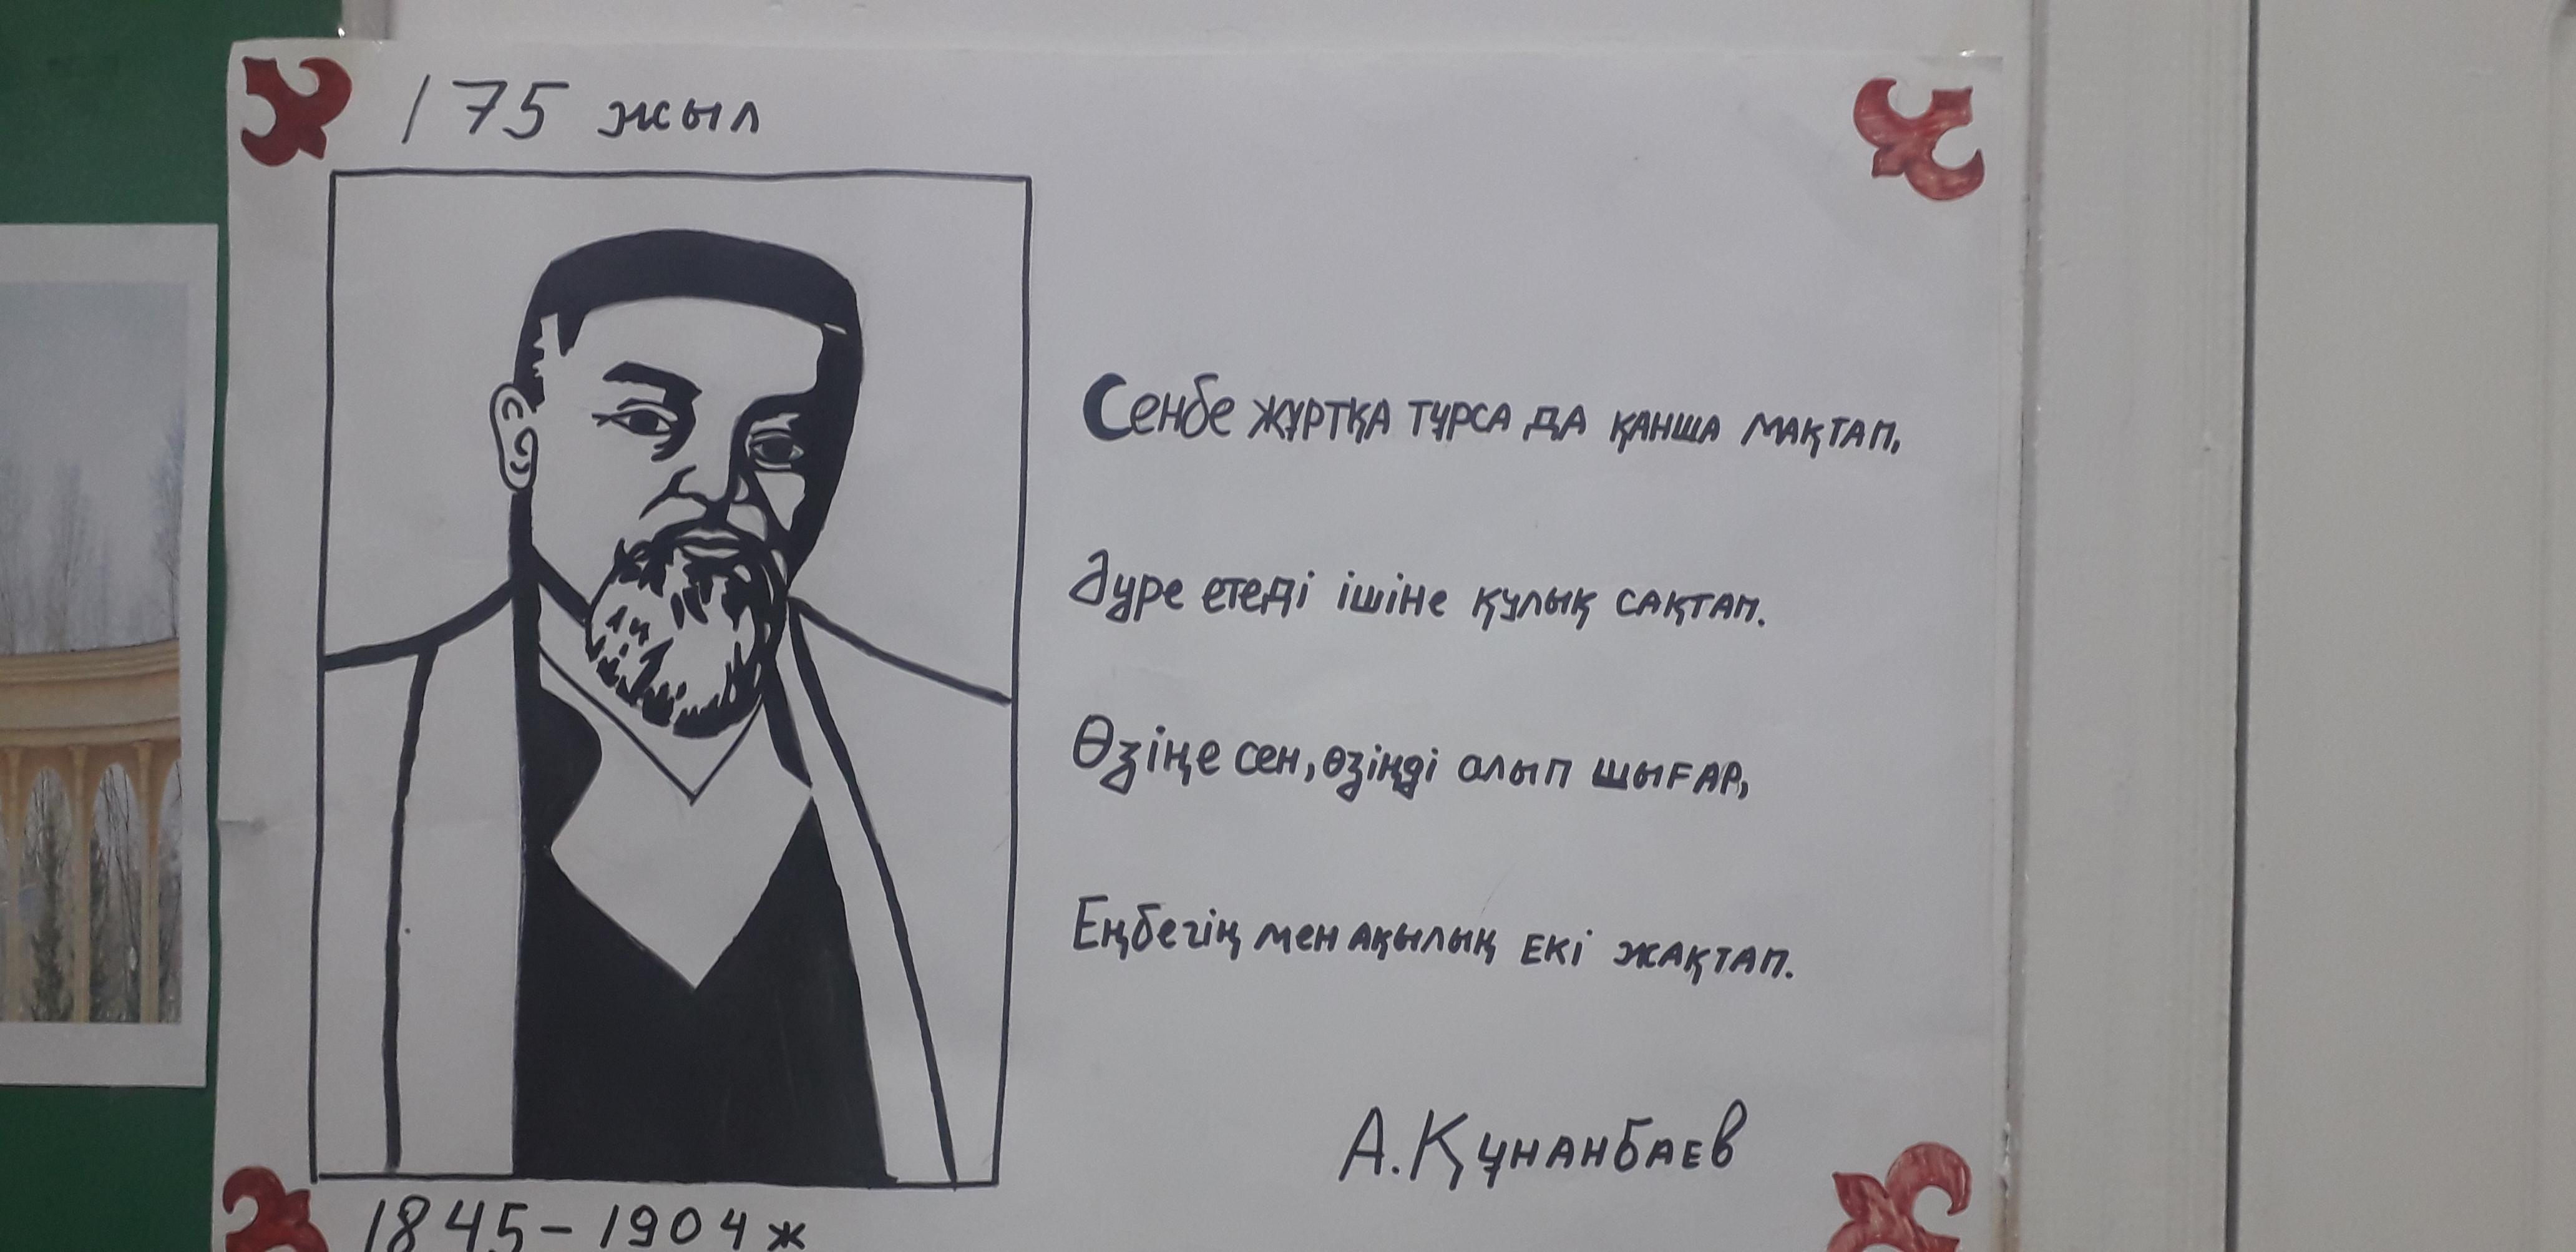 175 жыл
Сенбе жұртқа тұрса да қанша мақтап,
Әуре етеді ішіне қулық сақтап.
Өзіңе сен, өзіңді алып шығар,
Еңбегің мен ақылың екі жақтап.
А. Құнанбаев
1845-1904 ж